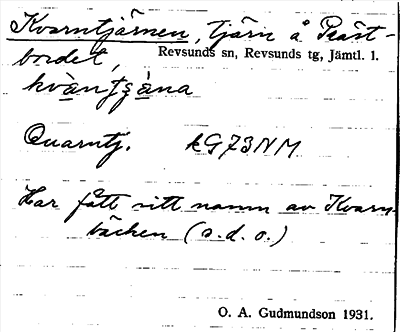 Kvarntjärnen, tjärn å Präst-
bordet, Revsunds sn, Revsunds tg, Jämtl. l.
Quarntj. kG73NM
Har fått sitt namn av Kvarn-
bäcken (s.d.o.)
O. A. Gudmundson 1931.